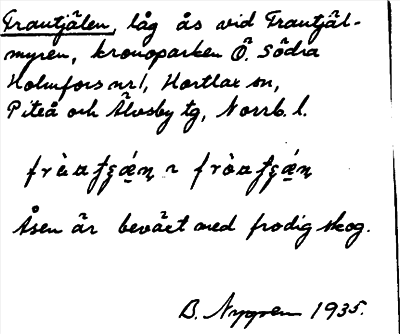 Frautjälen, låg ås vid Frautjäl-
myren, kronoparken Ö. Södra
Holmfors nr 1, Hortlax sn,
Piteå och Älvsby tg, Norrb. l.
Åsen är beväxt med frodig skog.
B. Nygren 1935.